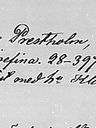 Prestholm,
efina. 28-397
t med hr. Kl